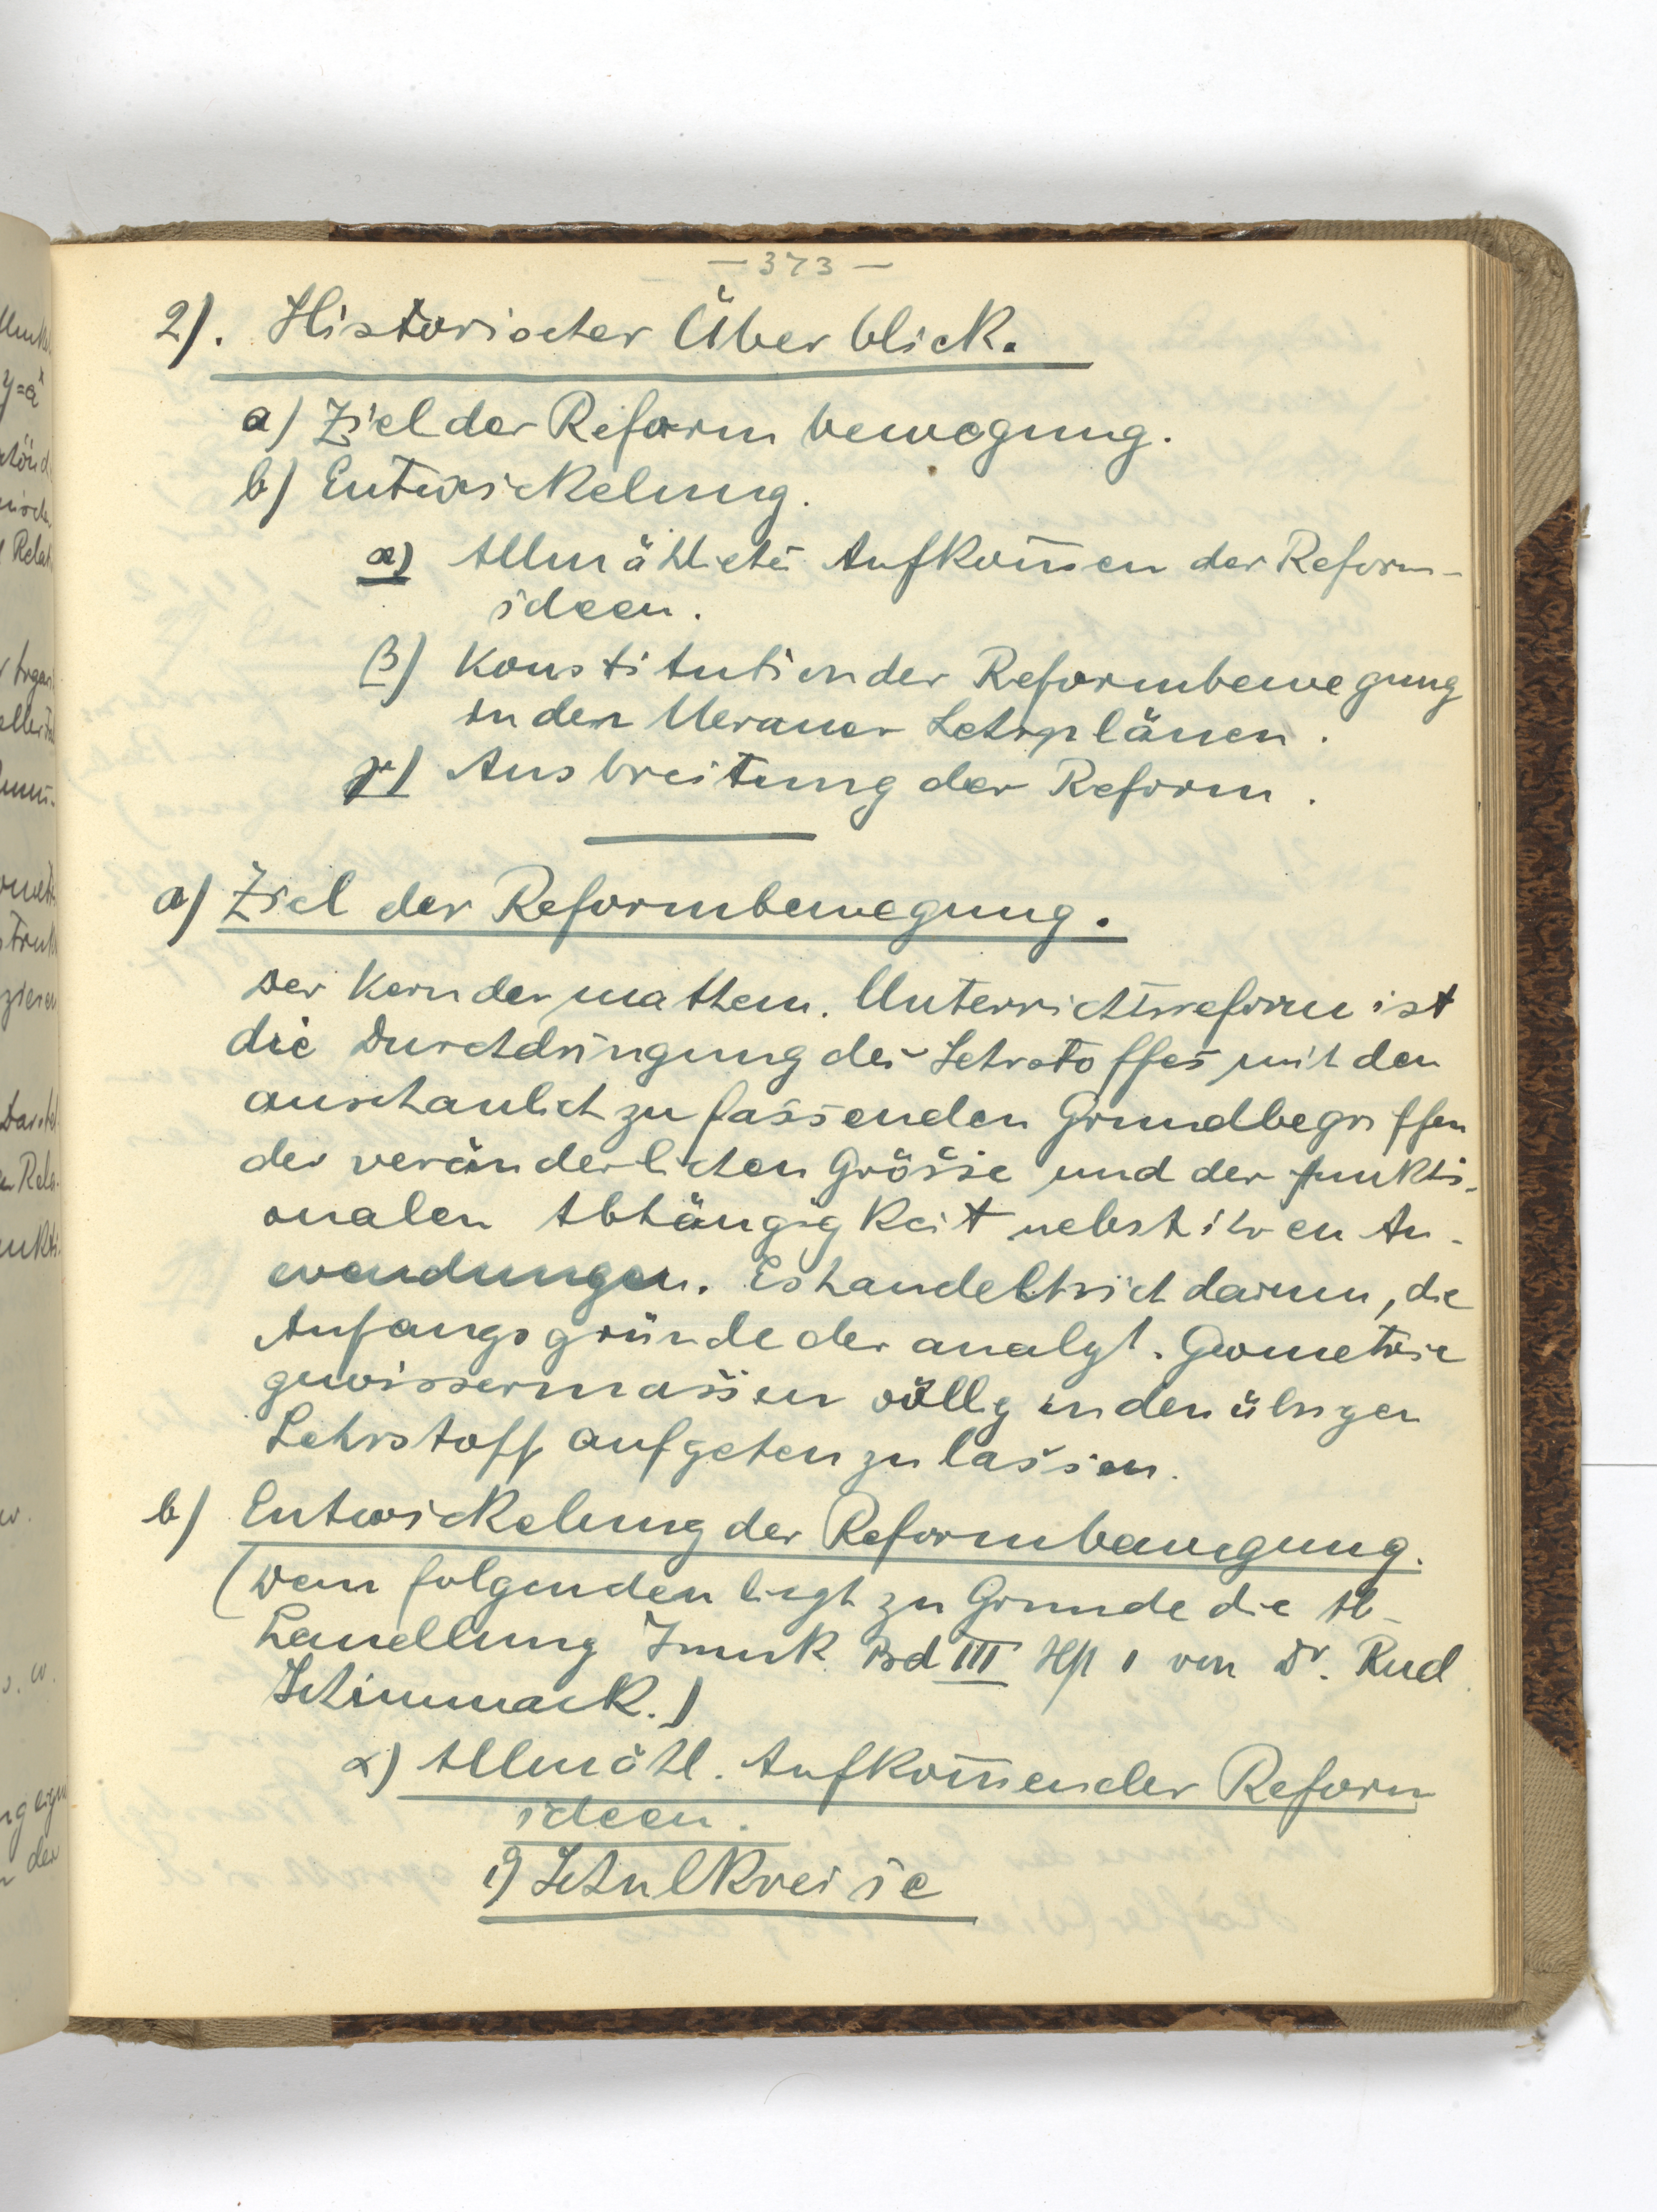 — 373 —
2). Historischer Überblick.
a) Ziel der Reformbewegung.
b) Entwickelung.
α) Allmähliches Aufkom̅en der Reform-
ideen.
β) Konstitution der Reformbewegung
in den Meraner Lehrplänen.
γ) Ausbreitung der Reform.
a) Ziel der Reformbewegung.
Der Kern der mathem. Unterrichtsreform ist
die Durchdringung des Lehrstoffes mit den
anschaulich zu fassenden Grundbegriffen
der veränderlichen Grösse und der funkti-
onalen Abhängigkeit nebst ihren An-
wendungen. Es handelt sich darum, die
Anfangsgründe der analyt. Geometrie
gewissermassen völlig in den übrigen
Lehrstoff aufgehen zu lassen.
b) Entwickelung der Reformbewegung.
(Dem folgenden liegt zu Grunde die Ab-
handlung Imuk Bd III Hft 1 von Dr. Rud.
Schimmack.)
α) Allmähl. Aufkom̅en der Reform
ideen.
1) Schulkreise